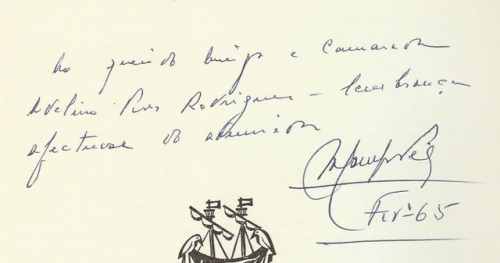 Ao querido amigo e camarada
Avelino Pires Rodrigues – lembrança
afectuosa do
Fevº 65